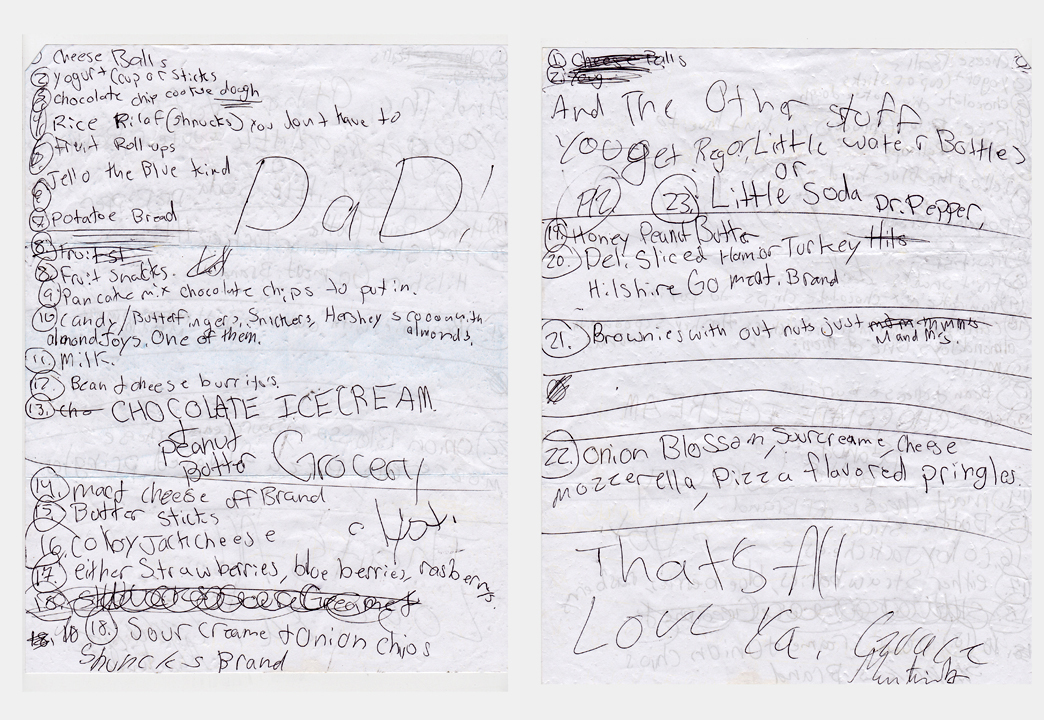 1 Cheese Balls
2 Yogurt cup or sticks
3 chocolate chip cookie dough
4 Rice Rilof (shnucks) you don't have to
5 Fruit Roll ups
6 Jello the Blue kind
DaD!
7. Potatoe Bread
8. Fruitst
8. Fruit snacks.
9. Pancake mix chocolate chips to put in.
10. Candy/Butterfingers, Snickers, Hershey's with almonds,
almond Joys. One of them.
11. Milk.
12. Bean + cheese burritos.
13. Cho CHOCOLATE ICECREAM.
Peanut
Butter
Grocery
14. mac + cheese off Brand
15. Butter sticks
16. Colby Jack cheese
17. either Strawberries, blue berries, rasberrys.
18. Sour creame + Onion chips
Shuncks Brand
1. Cheese Balls
2. Yog
And The Other stuff
You get Regor Little water Bottles
or
P12 23. Little Soda Dr. Pepper,
19. Honey Peanut Butter
20. Deli Sliced Ham or Turkey Hils
Hilshire Go meat. Brand
21. Brownies with out nuts just
M and M's.
22. Onion Blossom, Sourcreame, Cheese
mozzerella, Pizza flavored pringles.
Thats All
Love Ya,